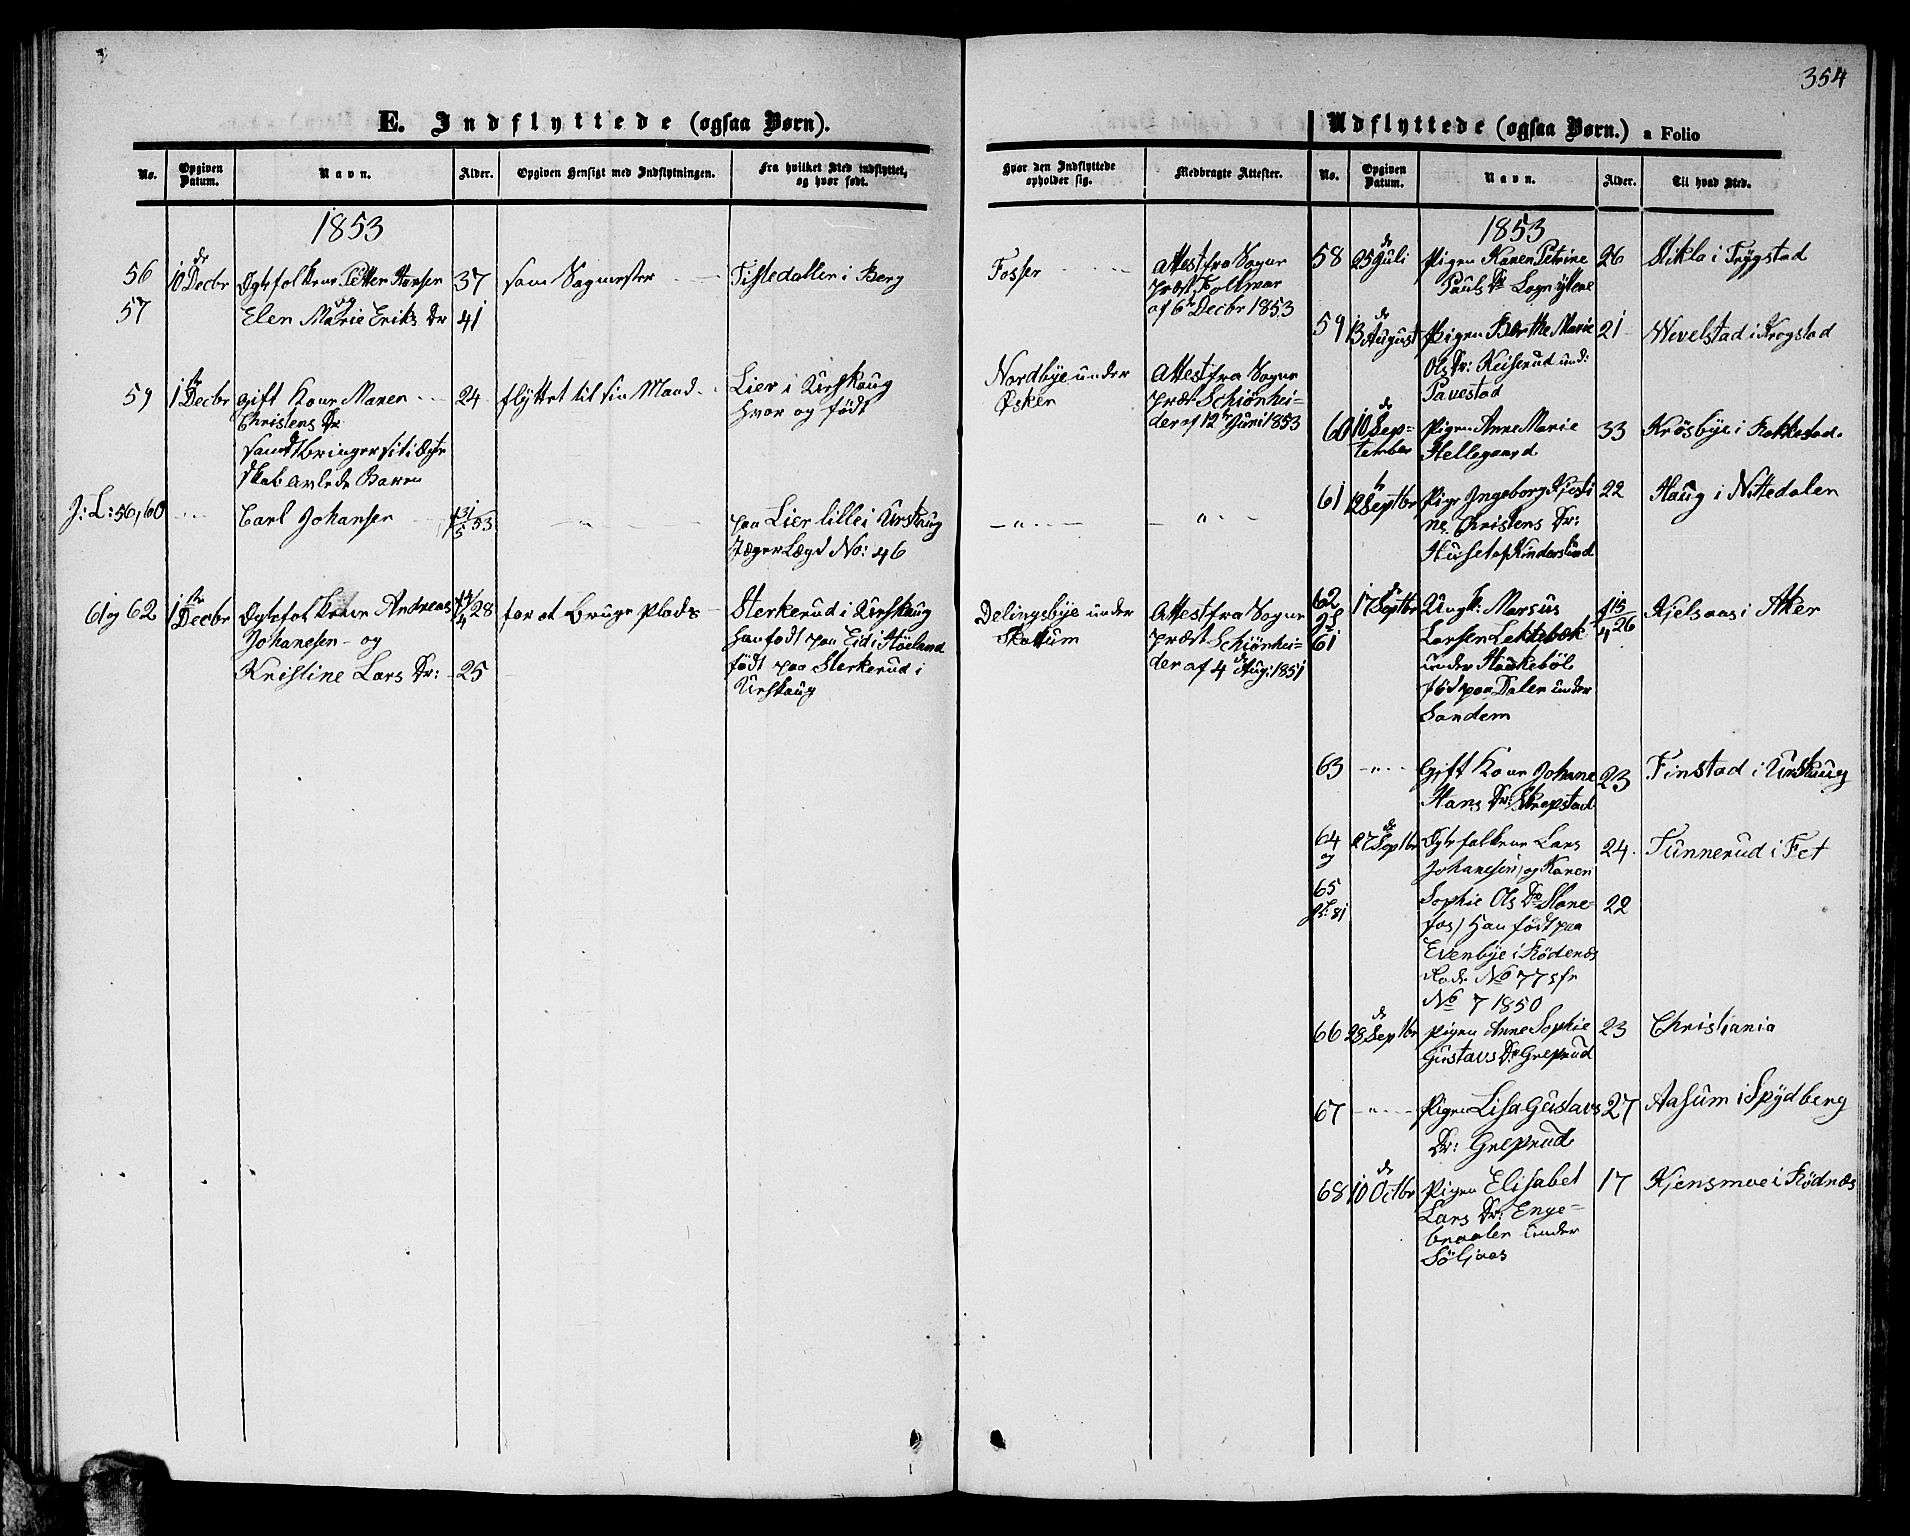 354
E. Indflyttede (ogsaa Børn).
No.
Opgiven Datum.
Navn.
Alder.
Opgiven Hensigt med Indflytningen.
Fra hvilket Sted indflyttet, og hvor født.
Hvor den Indflyttede opholder sig.
Medbragte Attester.
1853
56
57
10 de Decbr
Ægtefolkene Petter Hansen
og
Elen Marie Eriks Dr
37
41
som Sagmester
Tistedallen i Berg
Fosser
Attest fra Sogne
præst Foltmar
af 6 Decbr 1853
59
1 Decbr
Gift Kone Maren
Christens Dr
samt bringer sit i Ægte
skab avlede Barn
24
flyttet til sin Mand
Lier i Urskaug
hvor og født
Nordbye under
Øsken
Attest fra Sogne
præst Schiønhei-
der af 12 Juni 1853
J: L: 56, 60
Carl Johansen
f 31/5 53
- " -
paa Lier lille i Urskaug
Jæger Lægd No: 46
- " -
"
61 og 62
1 Decbr
Ægtefolkene Andreas
Johanesen - og
Kristine Lars Dr:
28
25
for at bruge Plads
Sterkerud i Urskaug
Han født paa Eid i Høland
født paa Sterkerud i
Urskaug
Delingsbye under
Skattum
Attest fra Sogne
præst Schiønhei-
der af 4 Aug: 1851
Udflyttede (ogsaa Børn.) a Folio
No.
Opgiven Datum.
Navn.
Alder.
Til hvad Sted.
1853
58
25 de Juli
Pigen Karen Petrine
Pauls Dr
26
Stikla i Trygstad
59
13 de August
Pigen Berthe Marie
Ols Dr: Keiserud und:
Pavestad
21
Wevelstad i Krogstad
60
10 de Sep=
tember
Pigen Anne Marie
Hellegaard
33
Krøsbye i Rakkestad.
61
12 Septbr
Pige Ingeborg Kjesti
ne Christens Dr:
Huset af Kinderslund
22
Haug i Nittedalen
62
61
17 de Septbr
Ungk: Marius
Larsen Lekkebæk
under Haukebøl
født paa Dalen under
Sandem
f 15/4 26
Kjelsaas i Aker
63
- " -
Gift Kone Johane
Hans Dr: Skrepstad
23
Finstad i Urskaug
64
og
65
27 de Septbr
Ægtefolkene Lars
Johanesen, og Karen
Sophie Ols Dr
fos) Han født paa
Evenbye i Rødenæs
No 7 1850
24
22
Tunnerud i Fet
66
28 de Septbr
Pigen Anne Sophie
Gustavs Dr Greprud
23
Christiania
67
- " -
Pigen Lisa Gustavs
Dr: Greprud
27
Aasum i Spydberg
68
10 de Octbr
Pigen Elisabet
Lars Dr: Enge=
braaten under
Søljaas
17
Kjensmoe i Rødnæs